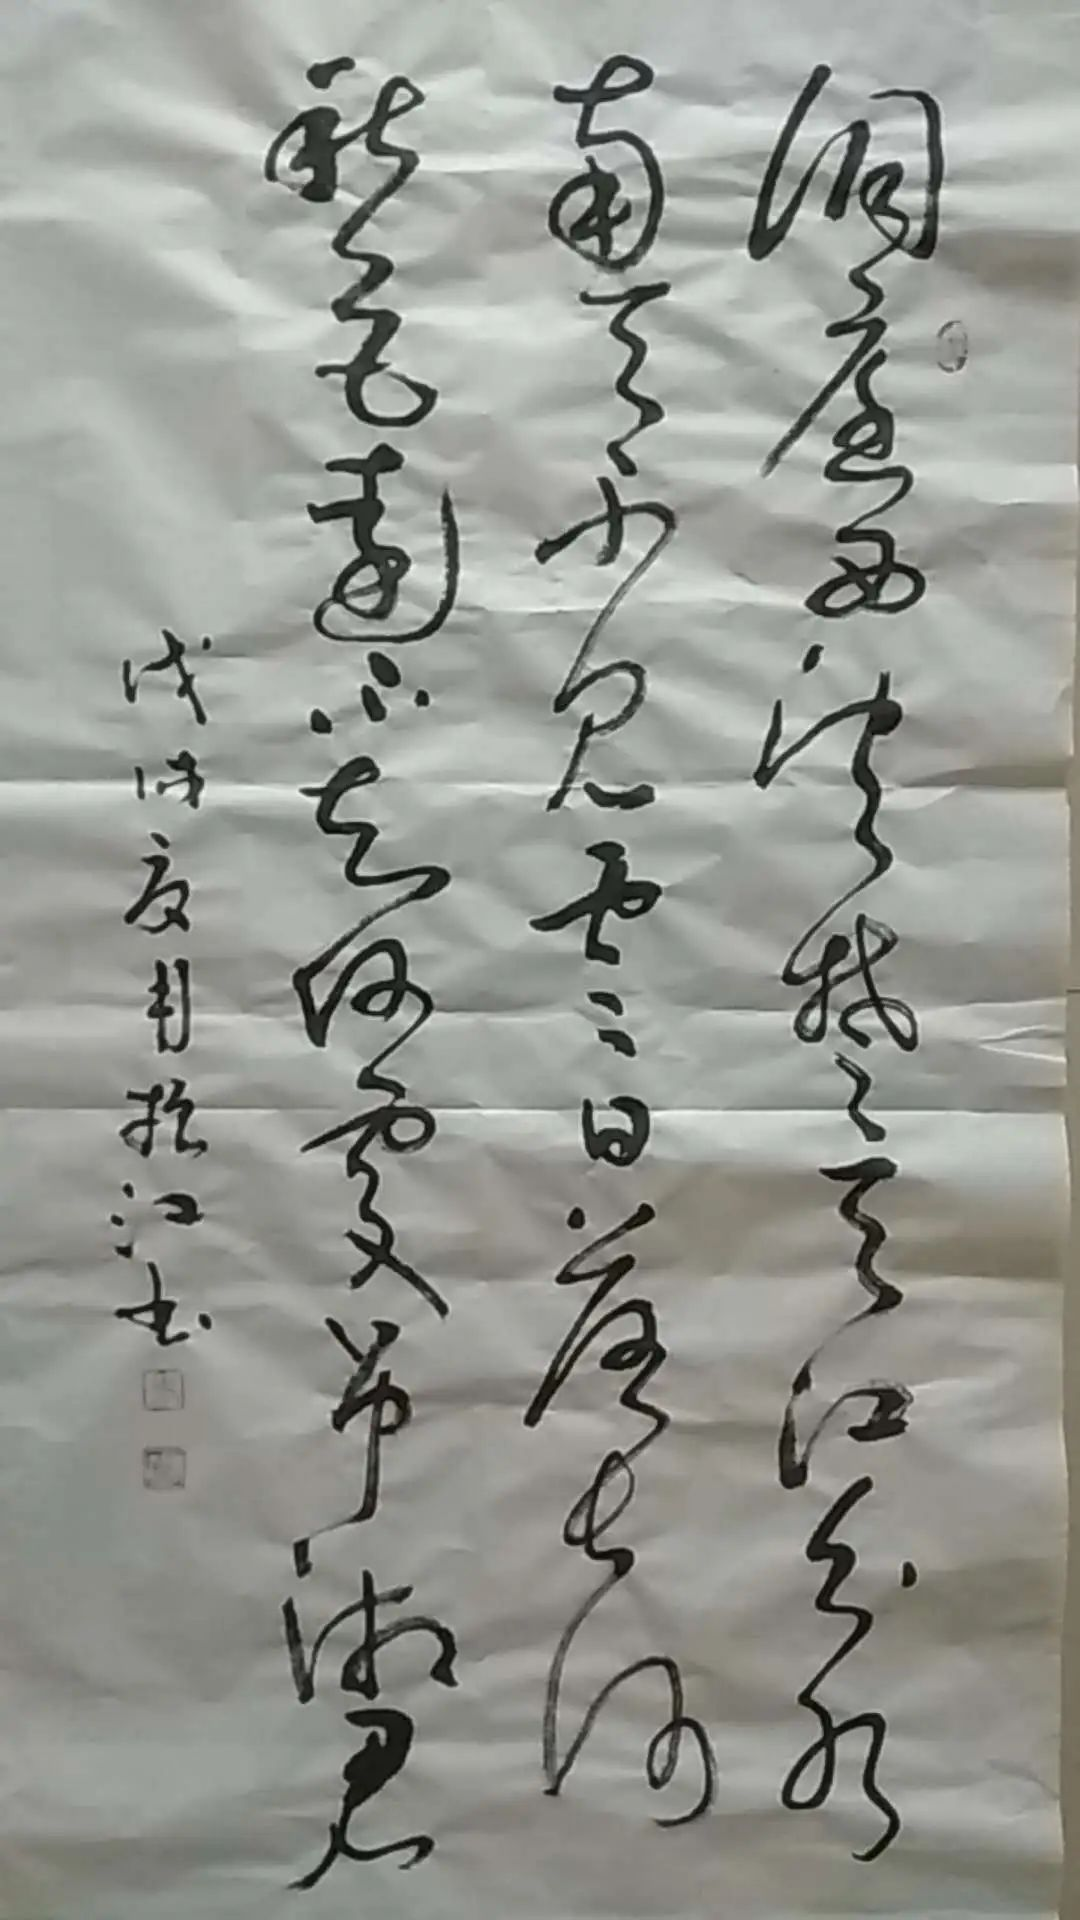 洞庭西望楚天江分水
南天不见雲日落长沙
秋色远不知何处吊湘君
戊戌夏月江书